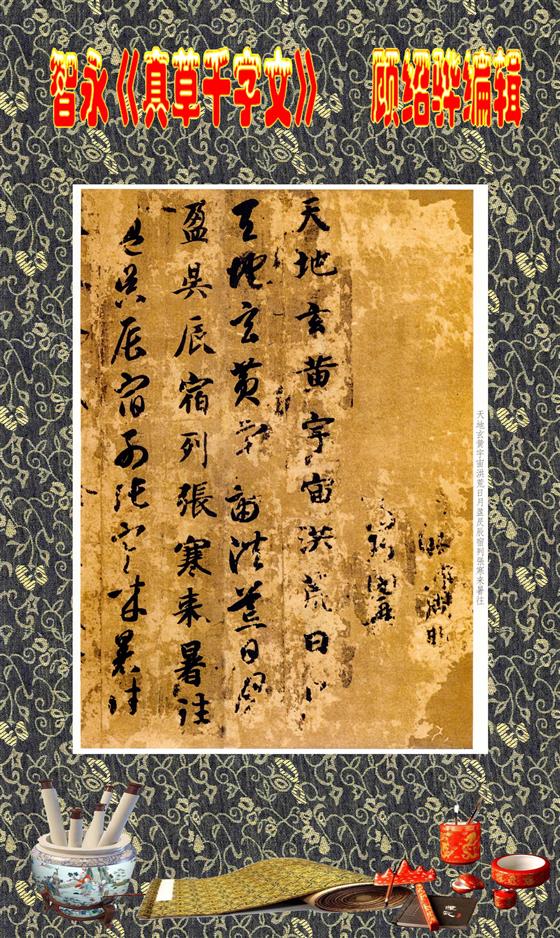 智永《真草千字文》 顾绍骅编辑
天地玄黄宇宙洪荒日月盈昃辰宿列张寒来暑往
天地玄黄宇宙洪荒日月
天地玄黄宇宙洪荒日月
盈昃辰宿列張寒来暑往
盈昃辰宿列張寒来暑往